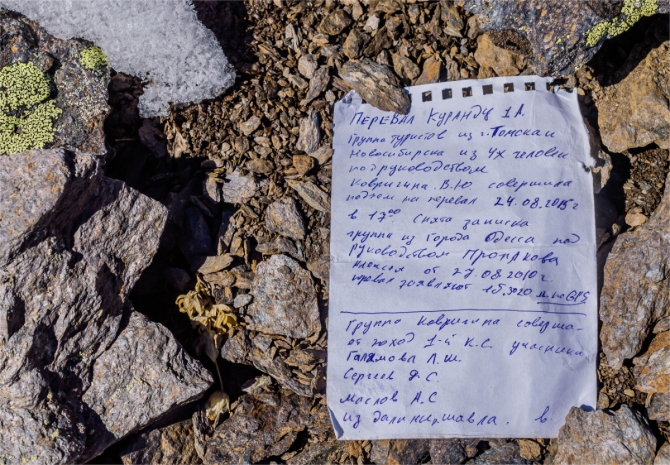 ПЕРЕВАЛ КУРАНДУ 1А.
Группа туристов из г. Томска и
Новосибирска из 4х человек
под руководством
Ковригина. В.Ю совершила
подъем на перевал 24.08.2015г
в 17⁰⁰. Снята записка
группы из города Одесса под
руководством
от 27.08.2010г.
м. по GPS
Группа Ковригина соверша-
ет поход 1-й К.С участники
Галямова Л.Ш.
Сергеев Д.С
Маслов А.С
из долины